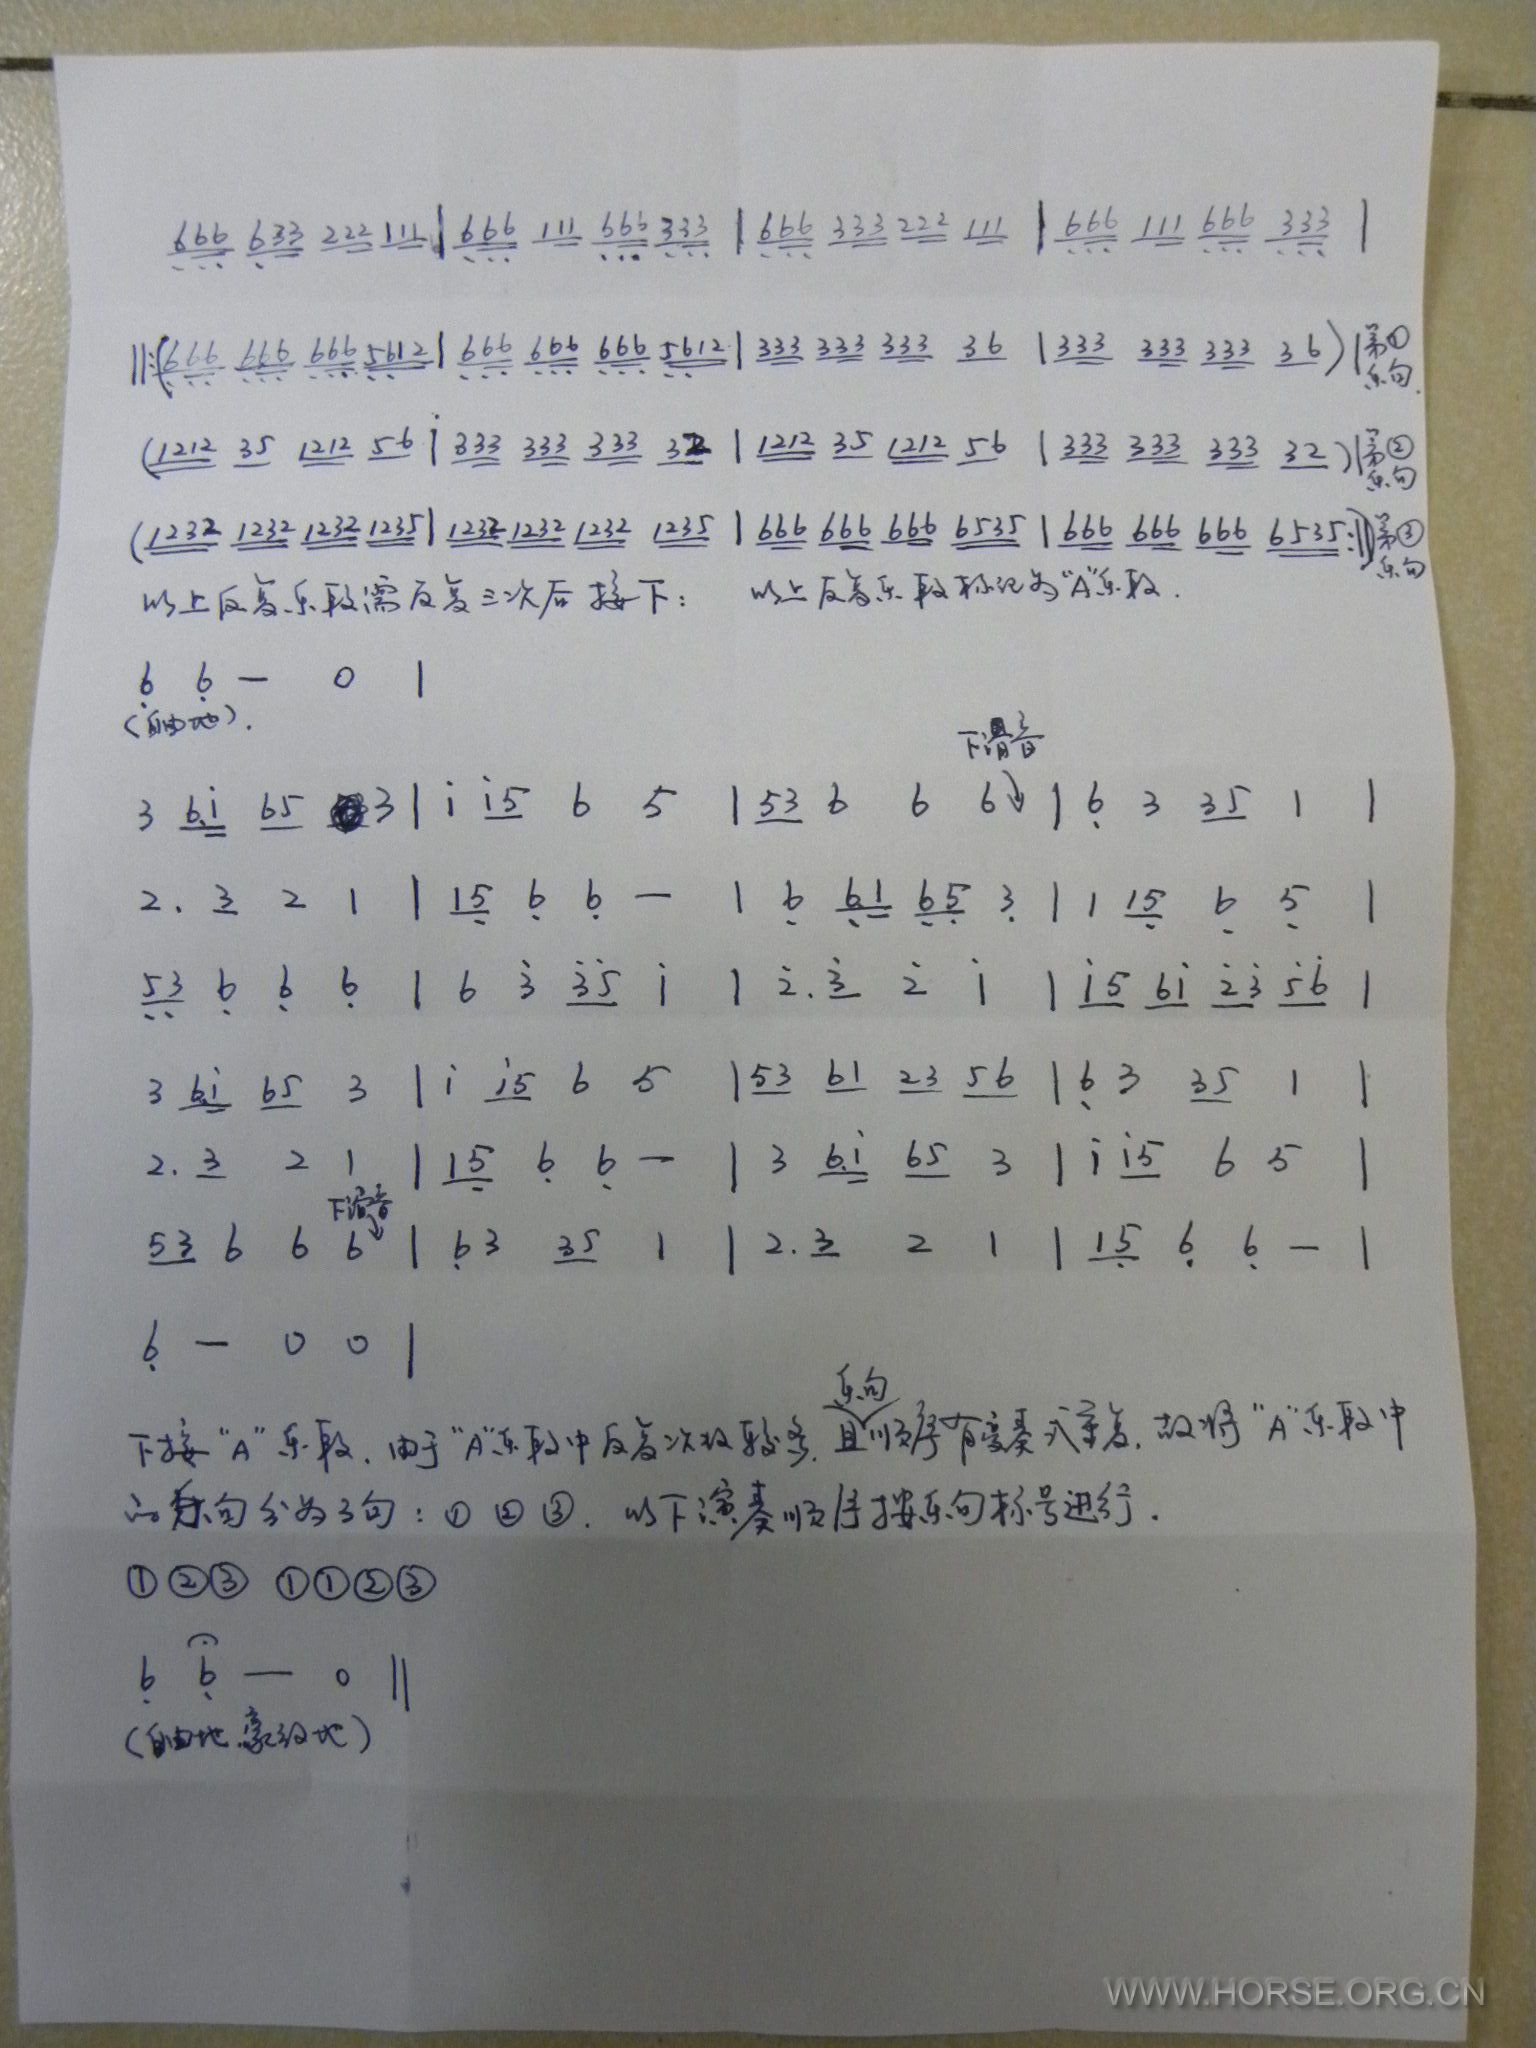 666 633 222 111 | 666 111 666 333 | 666 333 222 111 | 666 111 666 333 |
||:(666 666 666 5612 | 666 666 666 5612 | 333 333 333 36 | 333 333 333 36 )| 第①乐句.
(1212 35 1212 56 | 333 333 333 32 | 1212 35 1212 56 | 333 333 333 32 )| 第②乐句
(1232 1232 1232 1235 | 1232 1232 1232 1235 | 666 666 666 6535 | 666 666 666 6535 :||) 第③乐句
以上反复乐段需反复三次后接下: 以上反复乐段标记为"A"乐段.
6 6 — 0 |
(自由地).
下滑音
3 6.i 65 3 | i i5 6 5 | 53 6 6 6 | 6 3 35 1 |
2. 3 2 1 | 15 6 6 — | 6 6.1 65 3 | 1 15 6 5 |
53 6 6 6 | 6 3 35 i | 2. 3 2 i | i5 6i 23 56 |
3 6.i 65 3 | i i5 6 5 | 53 61 23 56 | 6 3 35 1 |
2. 3 2 1 | 15 6 6 — | 3 6.i 65 3 | i i5 6 5 |
下滑音
53 6 6 6 | 6 3 35 1 | 2. 3 2 1 | 15 6 6 — |
6 — 0 0 |
乐句
下接"A"乐段. 由于"A"乐段中反复次数较多, 且顺序有变奏式重复, 故将"A"乐段中
的乐句分为3句: ① ② ③. 以下演奏顺序按乐句标号进行.
①②③ ①①②③
6 6 — 0 ||
(自由地.豪放地)
WWW.HORSE.ORG.CN